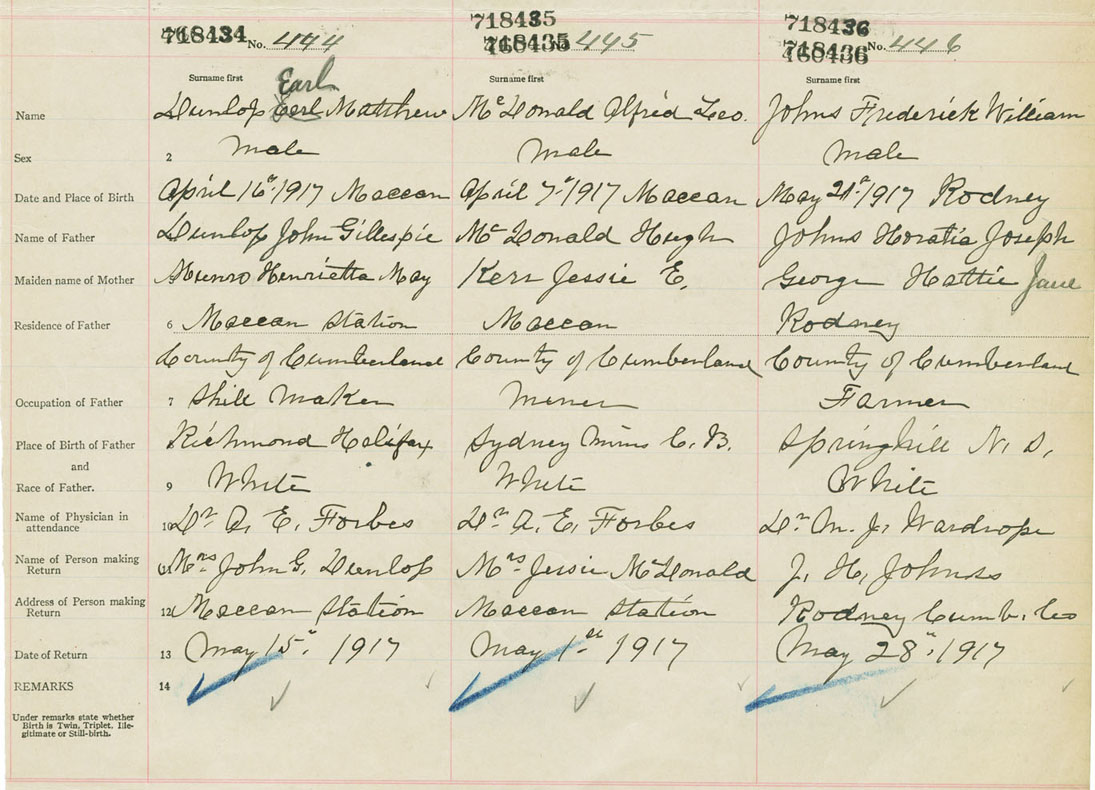 718434 No. 444 718435 718435 445 718436 No. 446
Surname first Surname first Surname first
Earl
Name Dunlop Earl Matthew McDonald Alfred Leo. Johns Frederick William
Sex 2 Male Male Male
Date and Place of Birth April 16" 1917 Maccan April 7" 1917 Maccan May 21st 1917 Rodney
Name of Father Dunlop John Gillespie McDonald Hugh Johns Horatia Joseph
Maiden name of Mother Munro Henrietta May Kerr Jessie E. George Hattie Jane
Residence of Father 6 Maccan Station Maccan Rodney
County of Cumberland County of Cumberland County of Cumberland
Occupation of Father 7 Skill Maker Miner Farmer
Place of Birth of Father Richmond Halifax Sydney Mines C. B. Springhill N. S.
and
Race of Father. 9 White White White
Name of Physician in attendance 10 Dr A. E. Forbes Dr A. E. Forbes Dr M. J. Wardrope
Name of Person making Return Mrs John G. Dunlop Mrs Jessie McDonald J. H. Johns
Address of Person making Return 12 Maccan Station Maccan Station Rodney Cumb. Co
Date of Return 13 May 15" 1917 May 1st 1917 May 28" 1917
REMARKS 14
Under remarks state whether
Birth is Twin, Triplet, Ille-
gitimate or Still-birth.